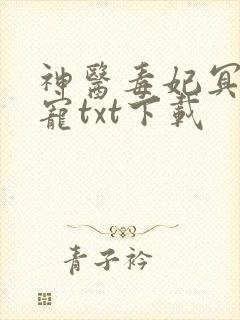 神醫毒妃冥
寵txt下載
青子衿